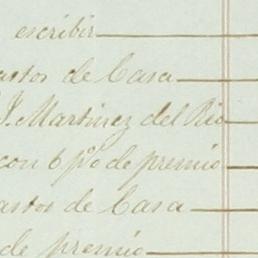 escribir
astos de Casa
J. Martinez del Rio
con 6 p% de premio
astos de Casa
de premio